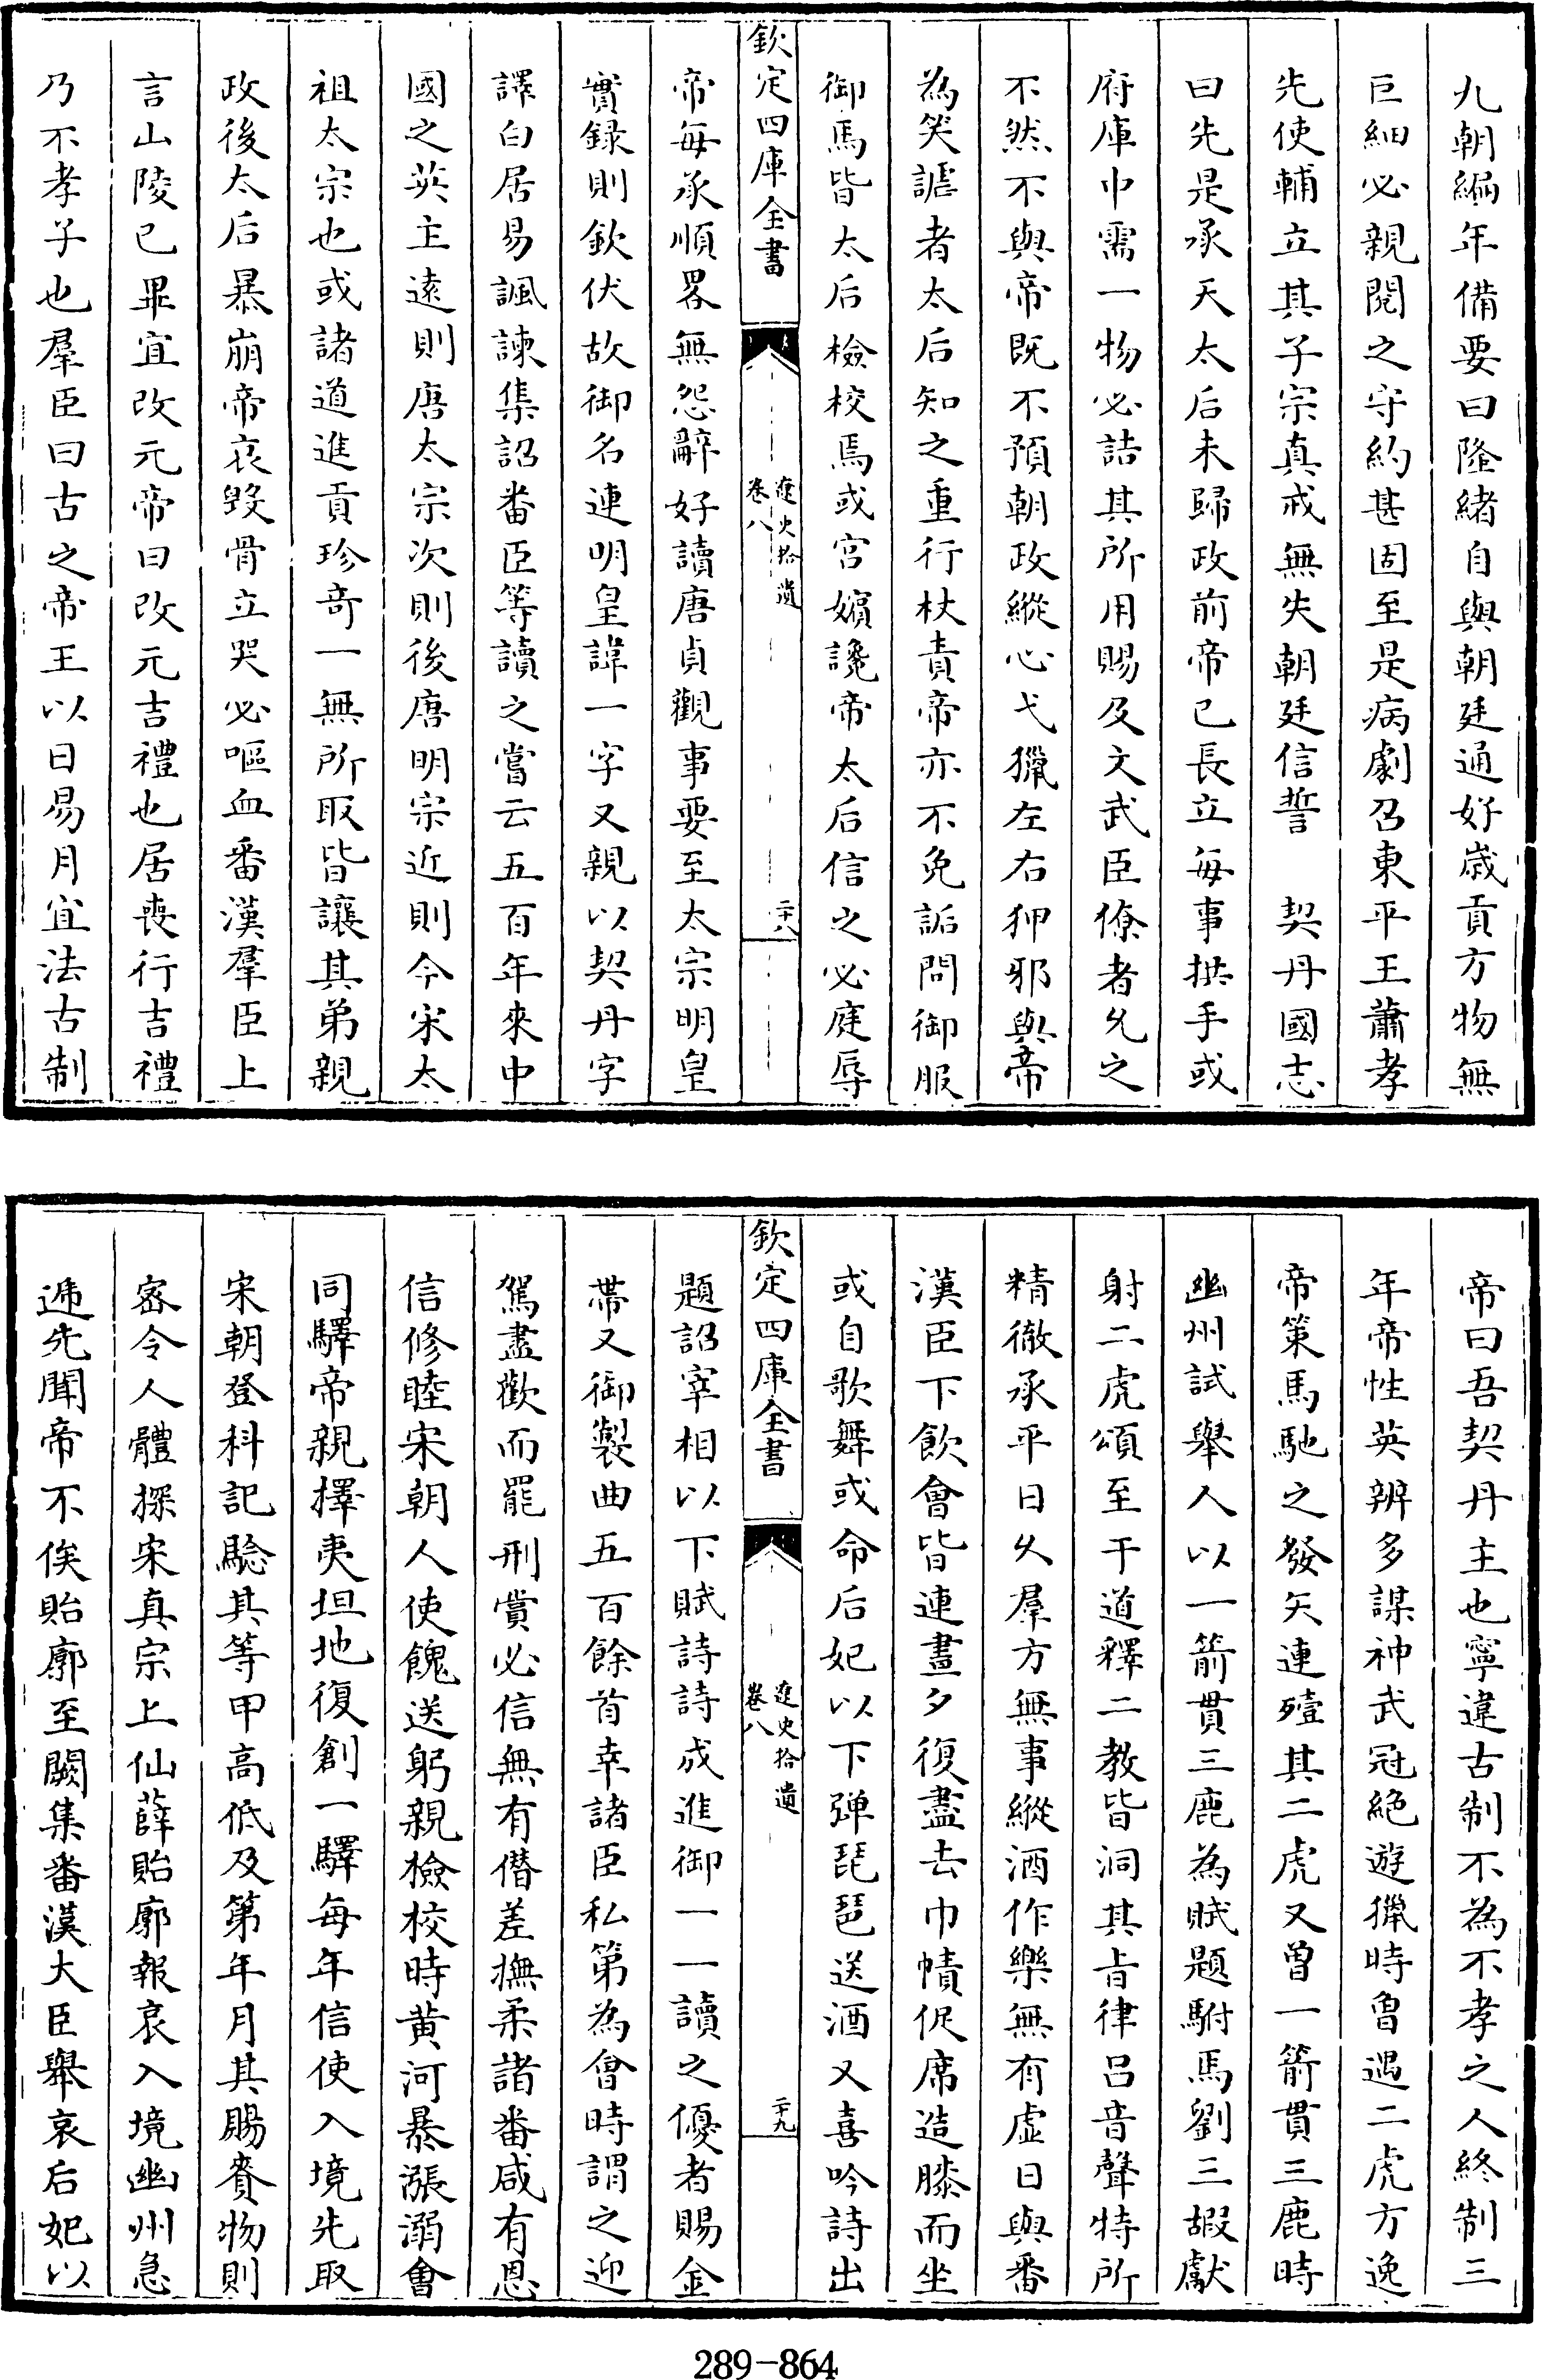 九朝編年備要曰隆緒自與朝廷通好歳貢方物無
巨細必親閱之守約甚固至是病劇召東平王蕭孝
先使輔立其子宗真戒無失朝廷信誓　契丹國志
曰先是承天太后未歸政前帝已長立每事拱手或
府庫中需一物必詰其所用賜及文武臣僚者允之
不然不與帝既不預朝政縱心弋獵左右狎邪與帝
為笑謔者太后知之重行杖責帝亦不免詬問御服
御馬皆太后檢校焉或宮嬪讒帝太后信之必庭辱
欽定四庫全書
遼史拾遺
卷八
二十八
帝每承順畧無怨辭好讀唐貞觀事要至太宗明皇
實錄則欽伏故御名連明皇諱一字又親以契丹字
譯白居易諷諫集詔番臣等讀之嘗云五百年來中
國之英主遠則唐太宗次則後唐明宗近則今宋太
祖太宗也或諸道進貢珍竒一無所取皆讓其弟親
政後太后暴崩帝哀毀骨立哭必嘔血番漢羣臣上
言山陵已畢宜改元帝曰改元吉禮也居喪行吉禮
乃不孝子也羣臣曰古之帝王以日易月宜法古制
帝曰吾契丹主也寧違古制不為不孝之人終制三
年帝性英辨多謀神武冠絶遊獵時曾遇二虎方逸
帝策馬馳之發矢連殪其二虎又曾一箭貫三鹿時
幽州試舉人以一箭貫三鹿為賦題駙馬劉三嘏獻
射二虎頌至于道釋二教皆洞其旨律呂音聲特所
精徹承平日久羣方無事縱酒作樂無有虛日與番
漢臣下飲會皆連晝夕復盡去巾幘促席造膝而坐
或自歌舞或命后妃以下彈琵琶送酒又喜吟詩出
欽定四庫全書
遼史拾遺
卷八
二十九
題詔宰相以下賦詩詩成進御一一讀之優者賜金
帶又御製曲五百餘首幸諸臣私第為會時謂之迎
駕盡歡而罷刑賞必信無有僭差撫柔諸番咸有恩
信修睦宋朝人使餽送躬親檢校時黃河暴漲溺會
同驛帝親擇夷坦地復創一驛每年信使入境先取
宋朝登科記驗其等甲高低及第年月其賜賚物則
密令人體探宋真宗上仙薛貽廓報哀入境幽州急
遞先聞帝不俟貽廓至闕集番漢大臣舉哀后妃以
289-864